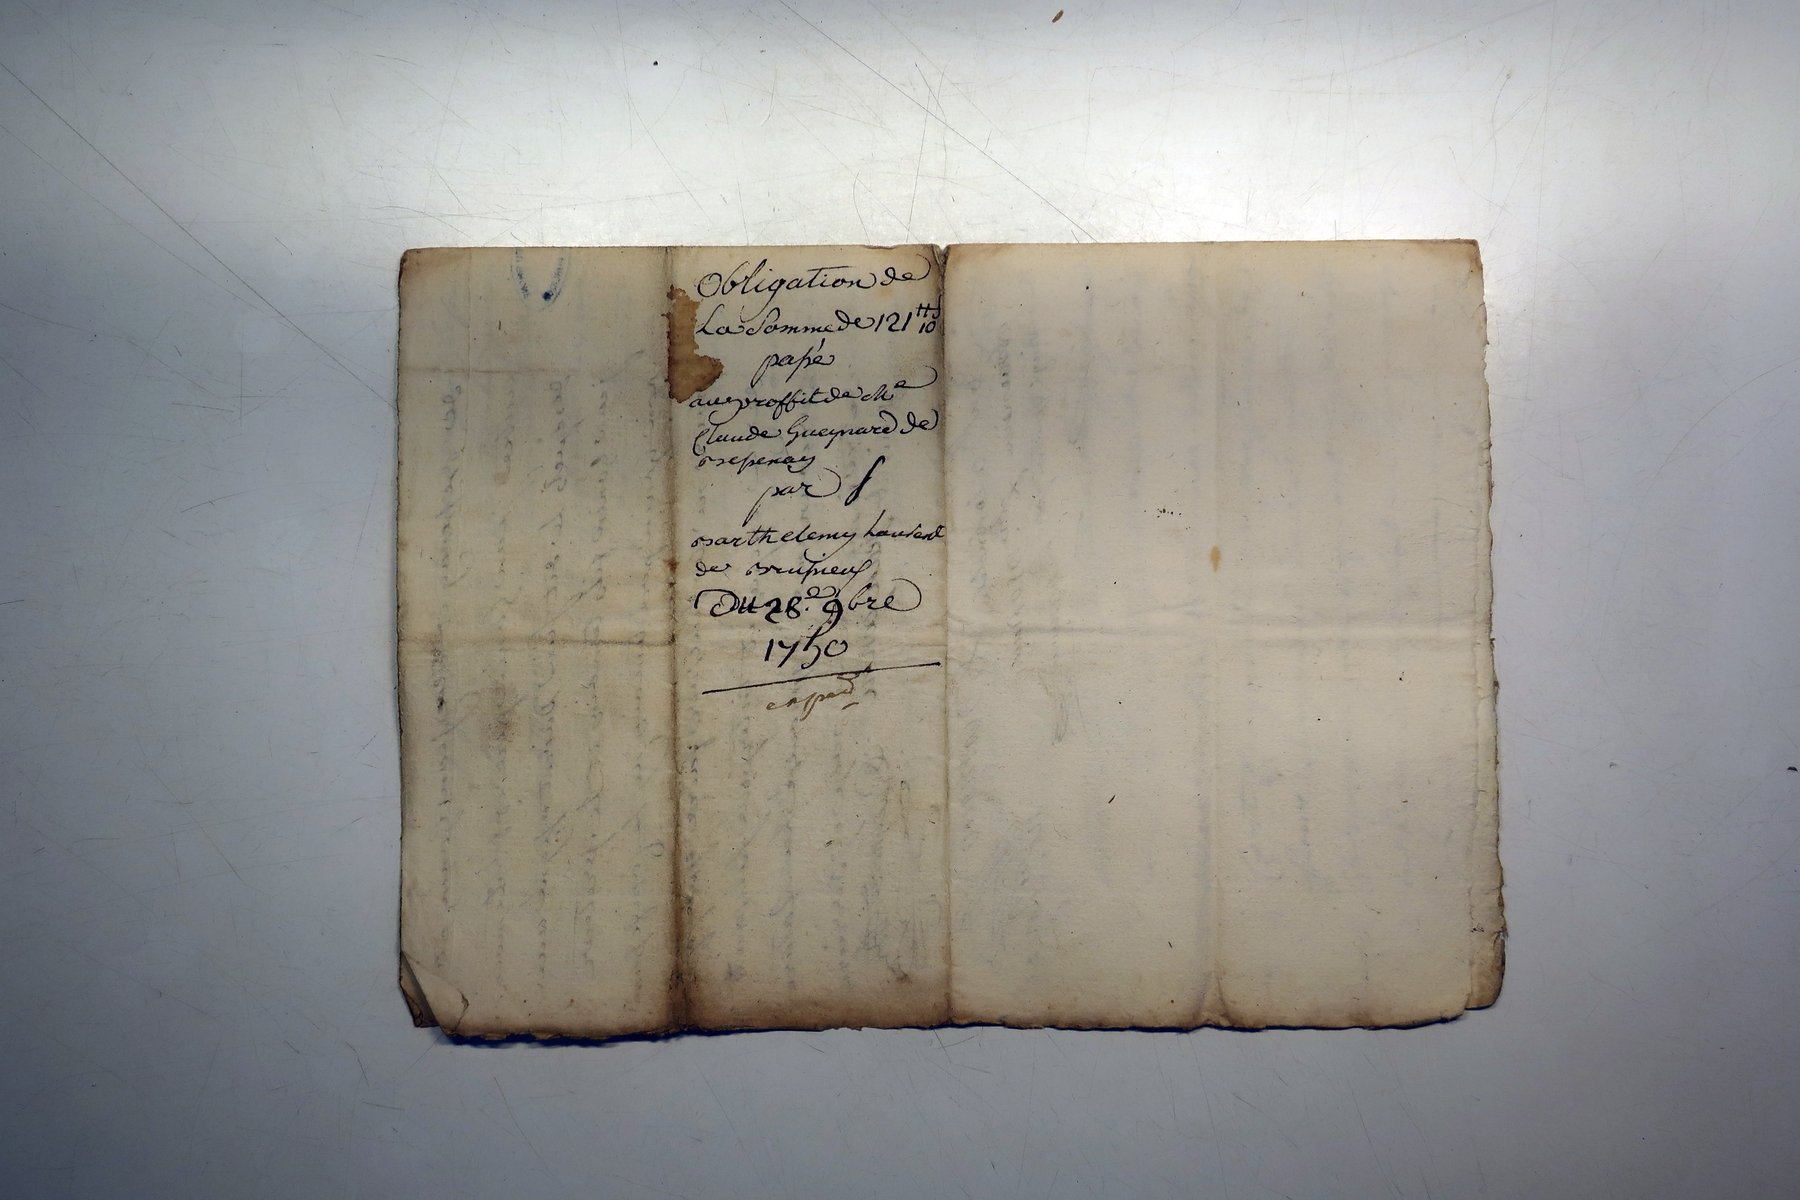 Obligation de
La Somme de 121 ₶ 10 s
passé
au proffit de Me
Claude Gueynard de
par
Barthelemy Laurent
de
Du 28e 9bre
1750